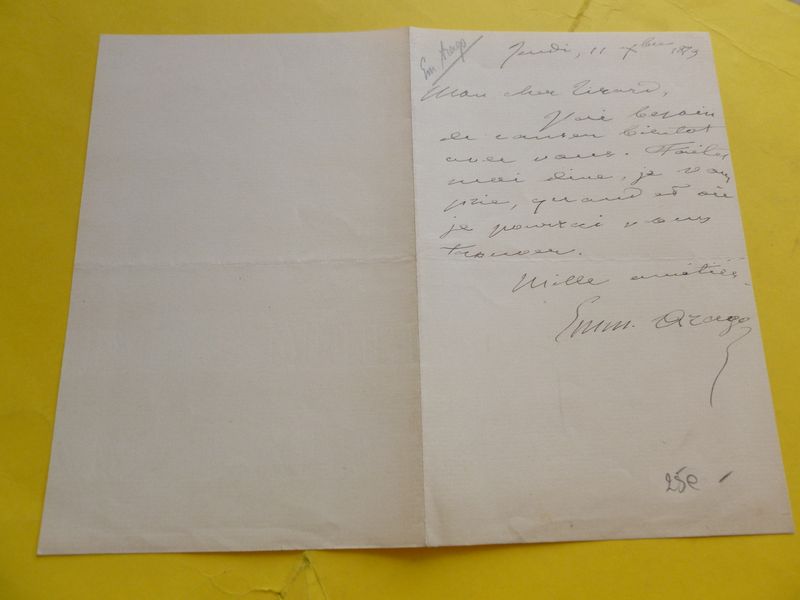 Em Arago
Jeudi, 11 Xbre 1879
Mon cher Tirard,
J'ai besoin
de causer bientôt
avec vous. Faites
moi dire, je vous
prie, quand et où
je pourrai vous
trouver.
Mille amitiés.
Emm. Arago
25€